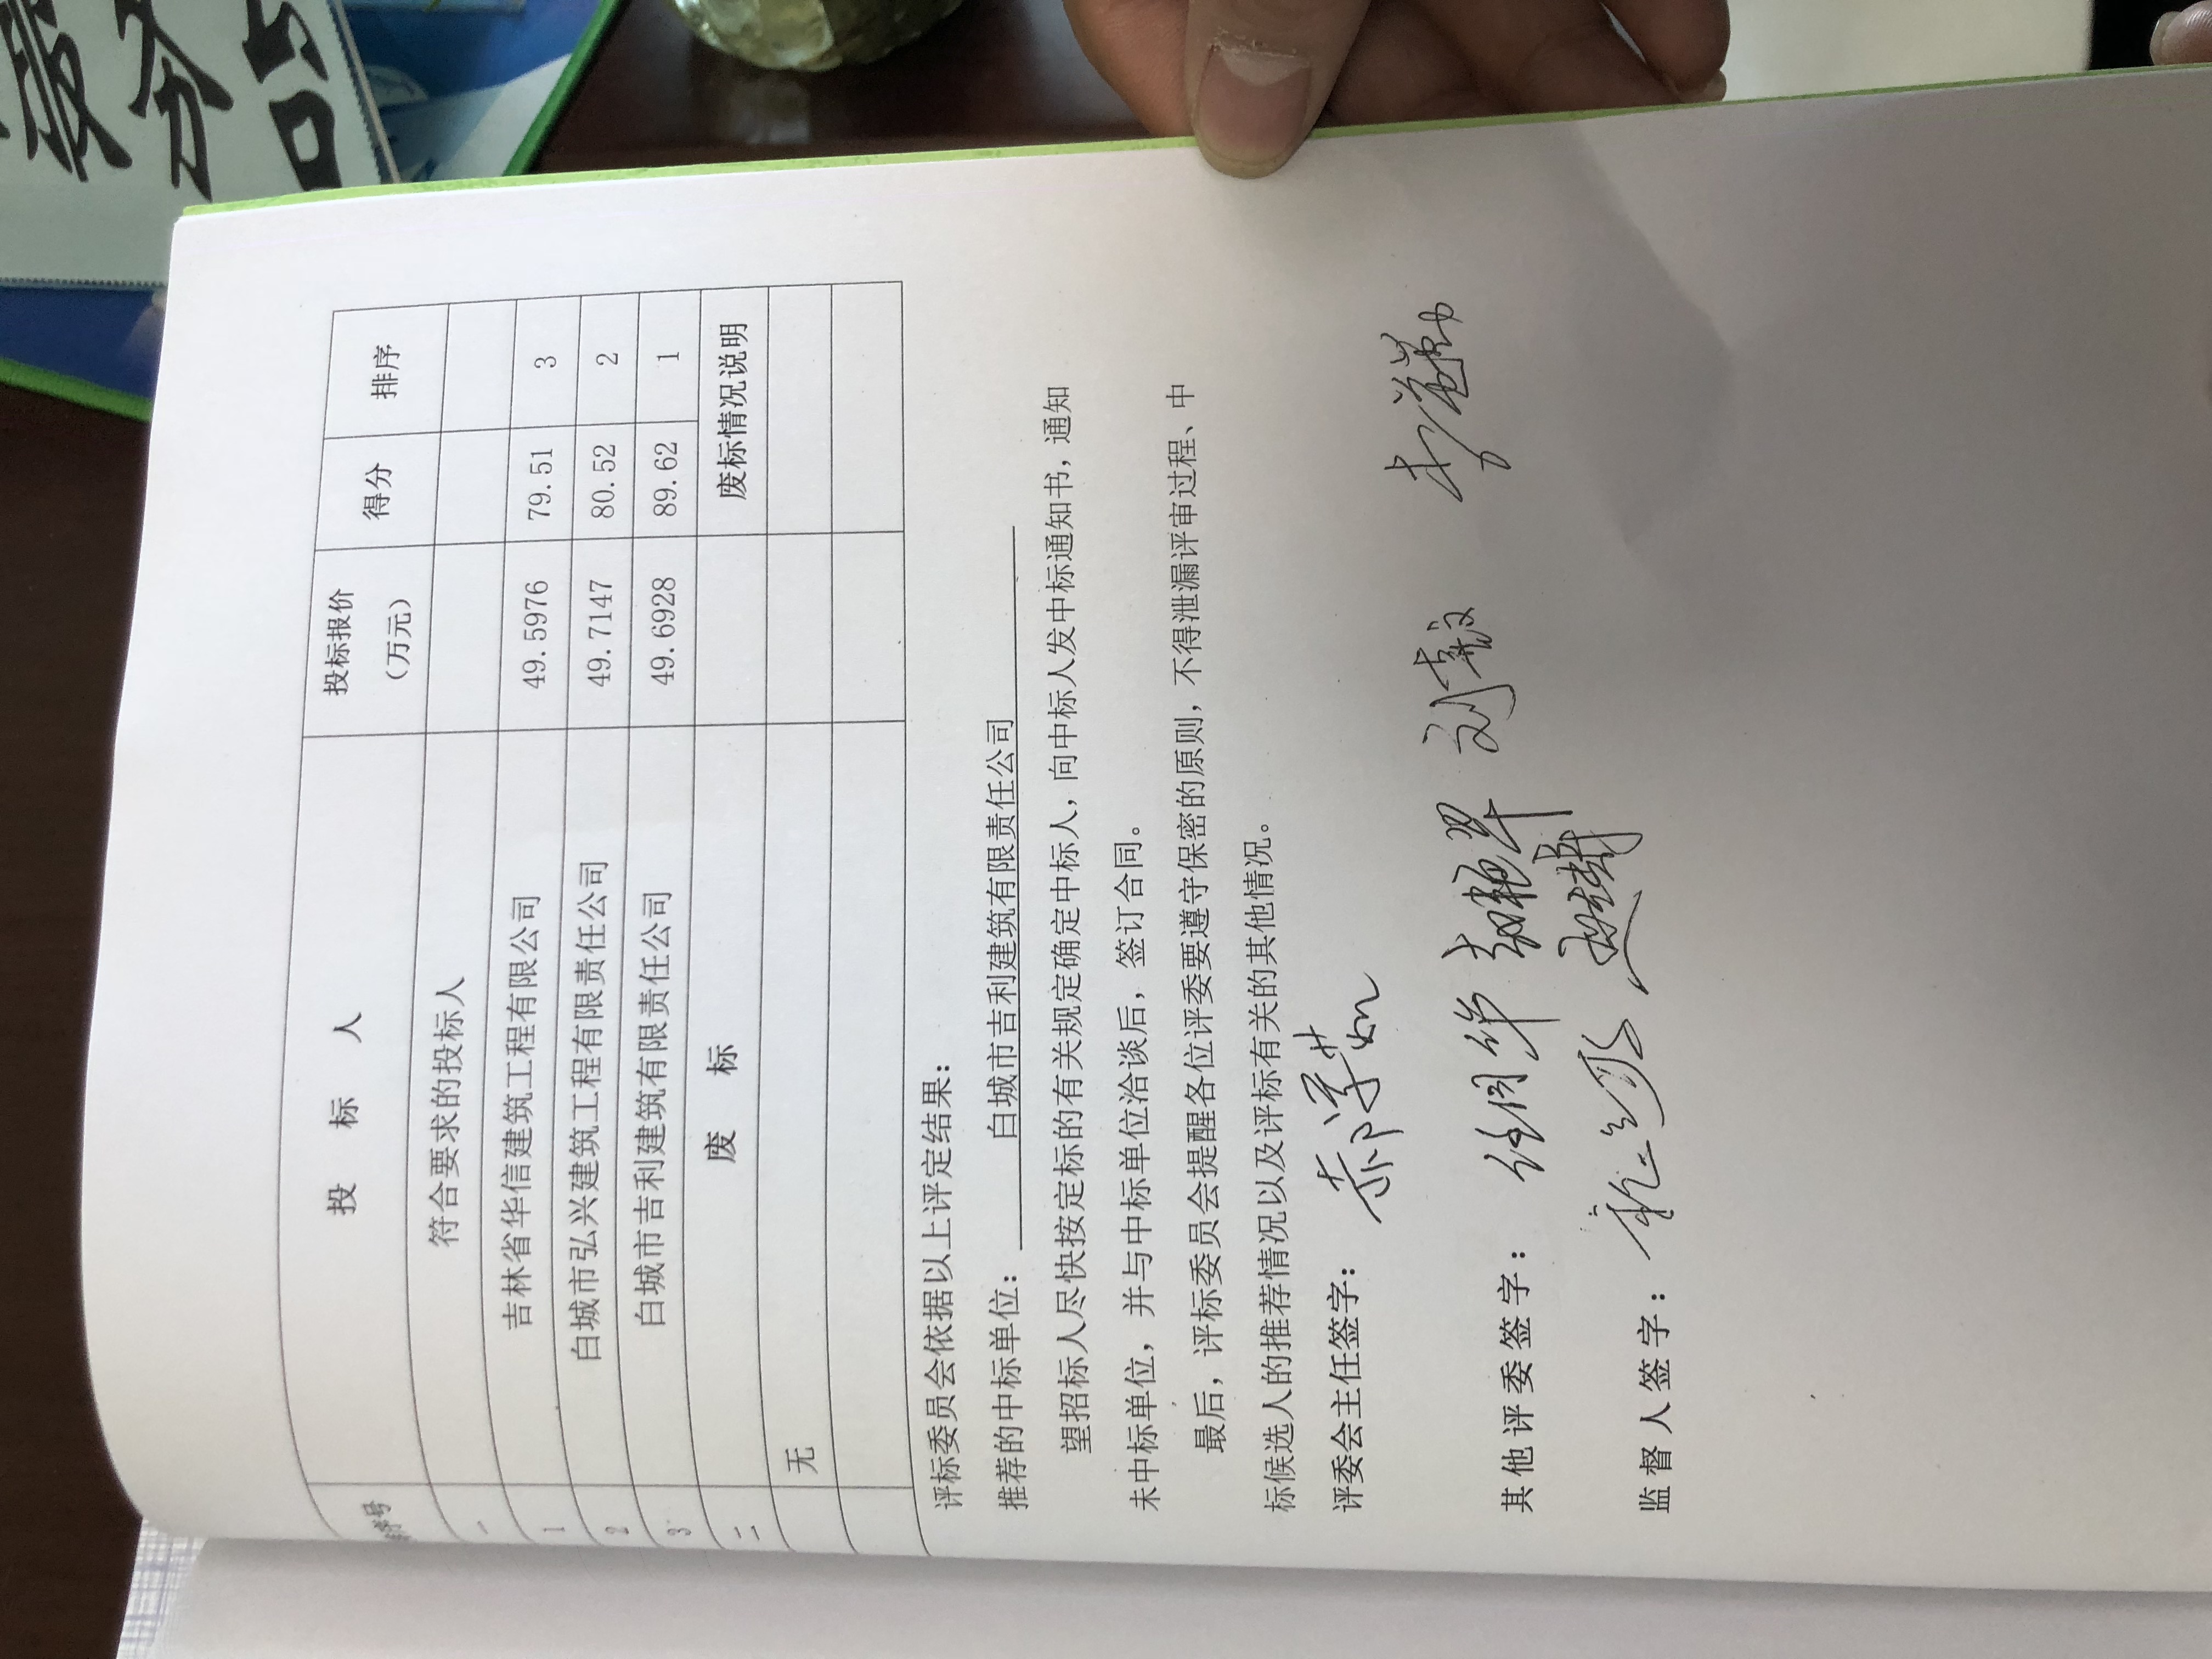 序号 投 标 人 投标报价（万元） 得分 排序
一 符合要求的投标人
1 吉林省华信建筑工程有限公司 49.5976 79.51 3
2 白城市弘兴建筑工程有限责任公司 49.7147 80.52 2
3 白城市吉利建筑有限责任公司 49.6928 89.62 1
二 废 标 废标情况说明
无
评标委员会依据以上评定结果：
推荐的中标单位： 白城市吉利建筑有限责任公司
望招标人尽快按定标的有关规定确定中标人，向中标人发中标通知书，通知
未中标单位，并与中标单位洽谈后，签订合同。
最后，评标委员会提醒各位评委要遵守保密的原则，不得泄漏评审过程、中
标候选人的推荐情况以及评标有关的其他情况。
评委会主任签字：
其他评委签字：
监督人签字：